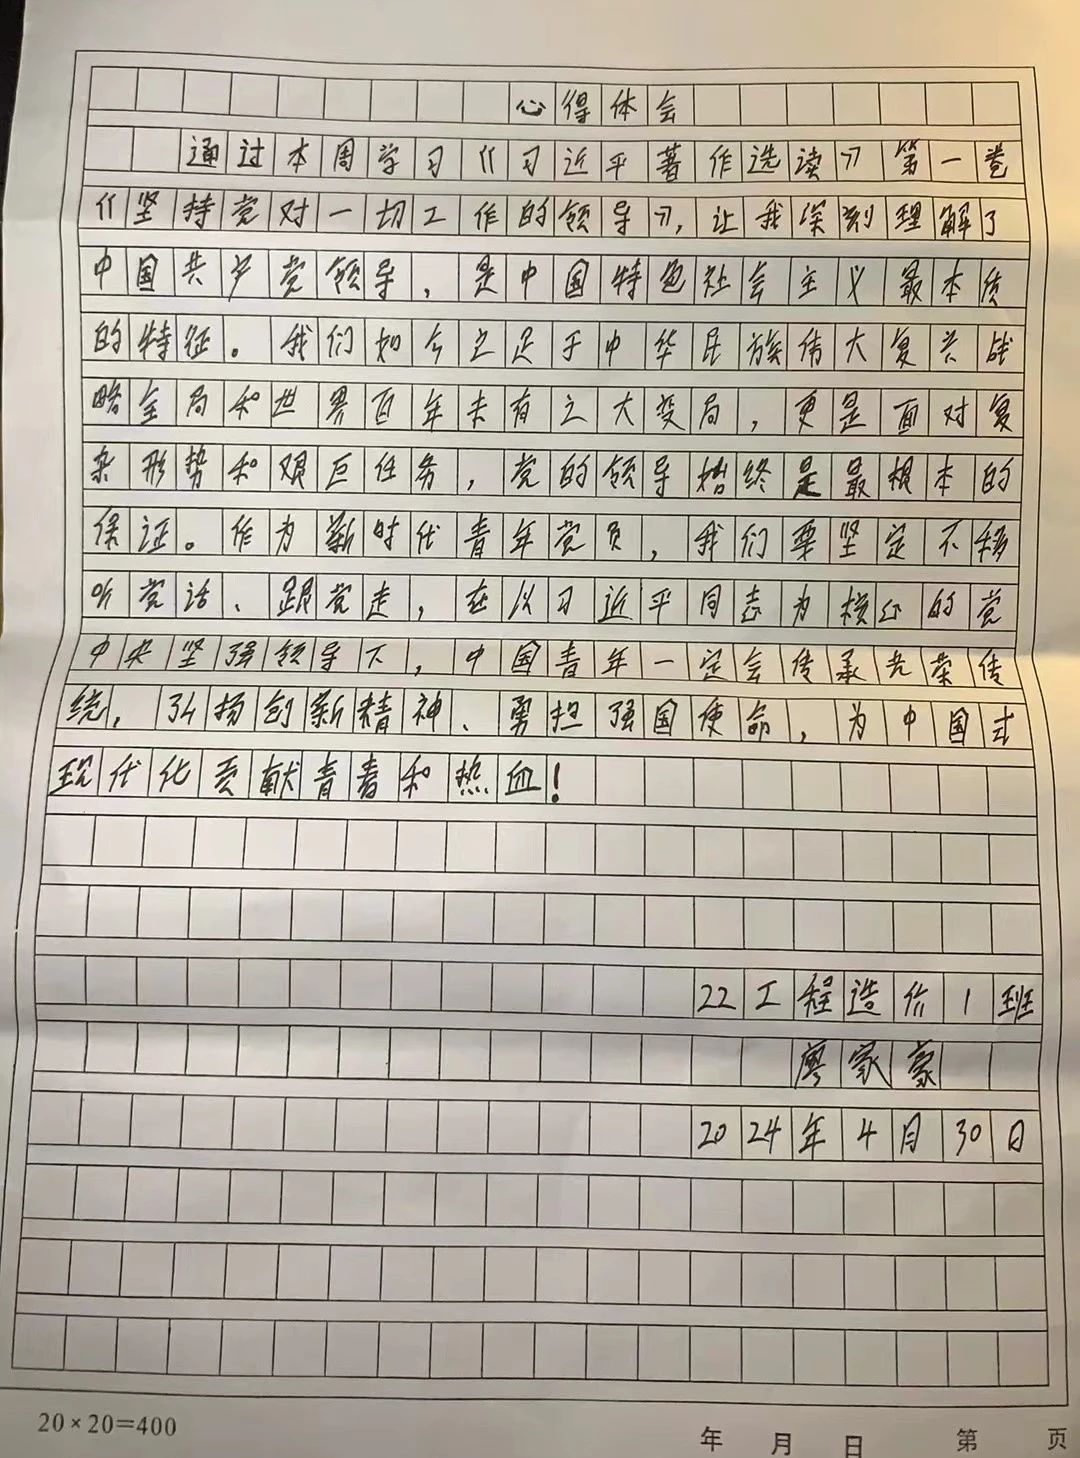 心得体会
通过本周学习《习近平著作选读》第一卷
《坚持党对一切工作的领导》，让我深刻理解了
中国共产党领导，是中国特色社会主义最本质
的特征。我们如今立足于中华民族伟大复兴战
略全局和世界百年未有之大变局，更是面对复
杂形势和艰巨任务，党的领导始终是最根本的
保证。作为新时代青年党员，我们要坚定不移
听党话、跟党走，在以习近平同志为核心的党
中央坚强领导下，中国青年一定会传承光荣传
统，弘扬创新精神、勇担强国使命，为中国式
现代化贡献青春和热血！
22工程造价1班
廖家豪
2024年4月30日
20×20=400 年 月 日 第 页